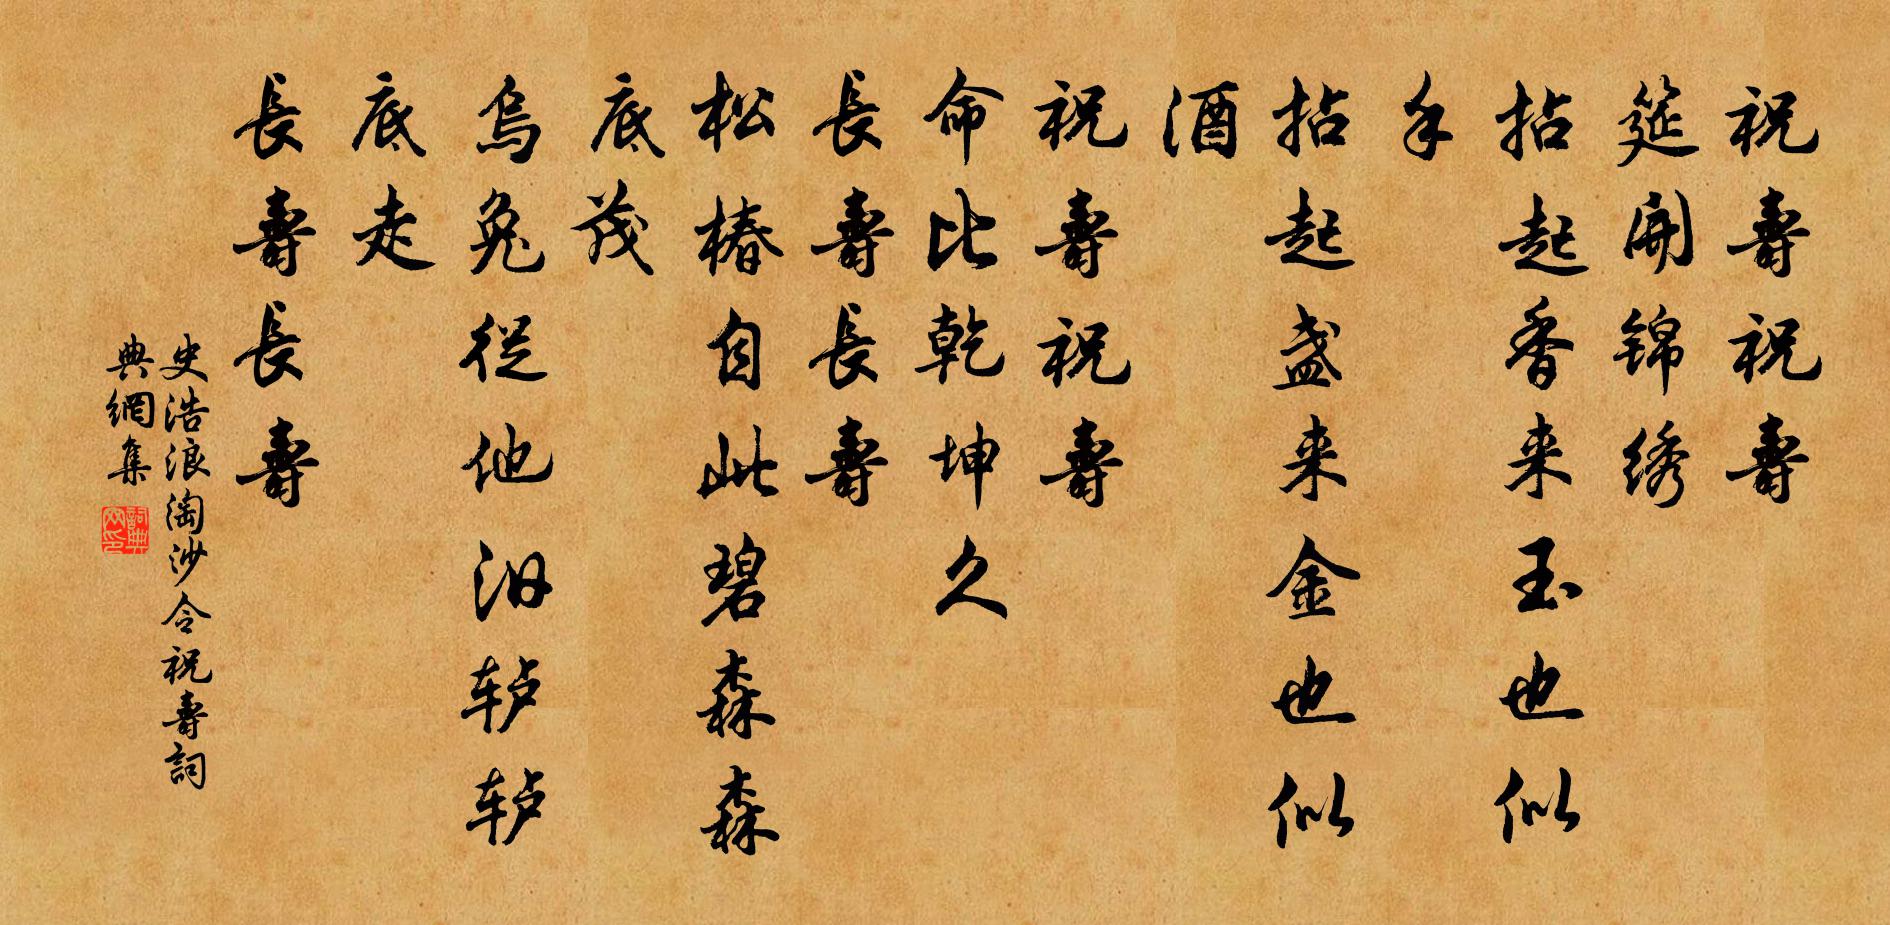 祝壽祝壽
筵開锦绣
拈起香来玉也似
手
拈起盏来金也似
酒
祝壽祝壽
命比乾坤久
長壽長壽
松椿自此碧森森
底茂
烏兔從他汩轳轳
底走
長壽長壽
史浩浪淘沙令祝壽詞
典網集
詞典网印